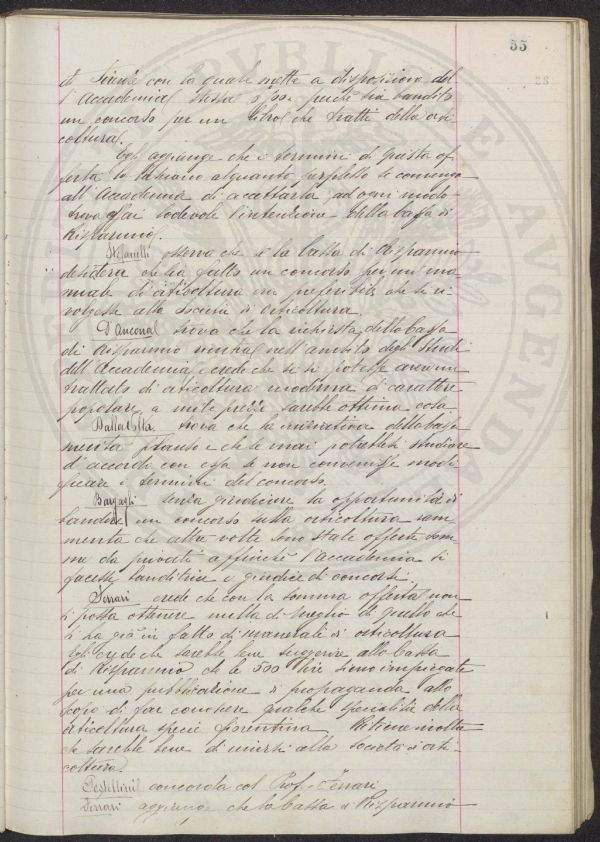 55
di Firenze con la quale mette a disposizione del
l'Accademia stessa £ 500 perché sia bandito
un concorso per un libro che tratti della orti
coltura.
Egli aggiunge che i termini di questa of
ferta lo lasciano alquanto perplesso se convenga
all'Accademia di accettarla, ad ogni modo
trova assai lodevole l'intenzione della Cassa di
Risparmio.
Stefanelli osserva che se la Cassa di Risparmio
desidera che sia fatto un concorso per un ma
nuale di orticoltura era preferibile che si ri
volgesse alla Società di Orticoltura.
D'Ancona trova che la richiesta della Cassa
di Risparmio rientra nell'ambito degli studi
dell'Accademia, e crede che se si potesse avere un
trattato di orticoltura moderna di carattere
popolare a mite prezzo sarebbe ottima cosa.
Dalla Volta trova che la iniziativa della Cassa
merita plauso e che se mai potrebbesi studiare
d'accordo con essa se non convenisse modi
ficare i termini del concorso.
Bargagli senza giudicare la opportunità di
bandire un concorso sulla orticoltura ram
menta che altre volte sono state offerte som
me da privati affinché l'accademia si
facesse banditrice e giudice di concorsi.
Ferrari crede che con la somma offerta non
si possa ottenere nulla di meglio di quello che
si ha già in fatto di manuali di orticoltura
Egli crede che sarebbe bene suggerire alla Cassa
di Risparmio che le 500 lire siano impiegate
per una pubblicazione di propaganda allo
scopo di far conoscere qualche specialità della
orticoltura specie fiorentina. Ritiene inoltre
che sarebbe bene di unirsi alla società di orti
coltura.
Pestellini concorda col Prof. Ferrari
Ferrari aggiunge che la Cassa di Risparmio